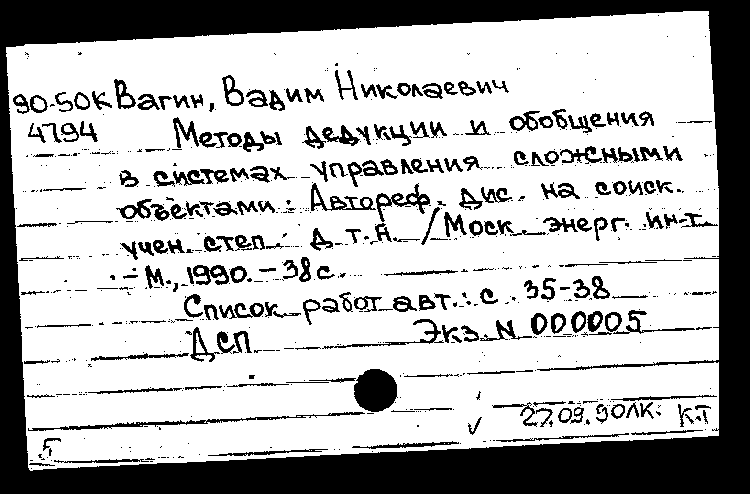 90-50К Вагин, Вадим Николаевич
4794 Методы дедукции и обобщения
в системах управления сложными
объектами: Автореф. дис. на соиск.
учен. степ. д.т.н. / Моск. энерг. ин-т.
- М., 1990. - 38 с.
Список работ авт.: с. 35-38
ДСП Экз. N 000005
27.09.90 ЛК. К.Т
5